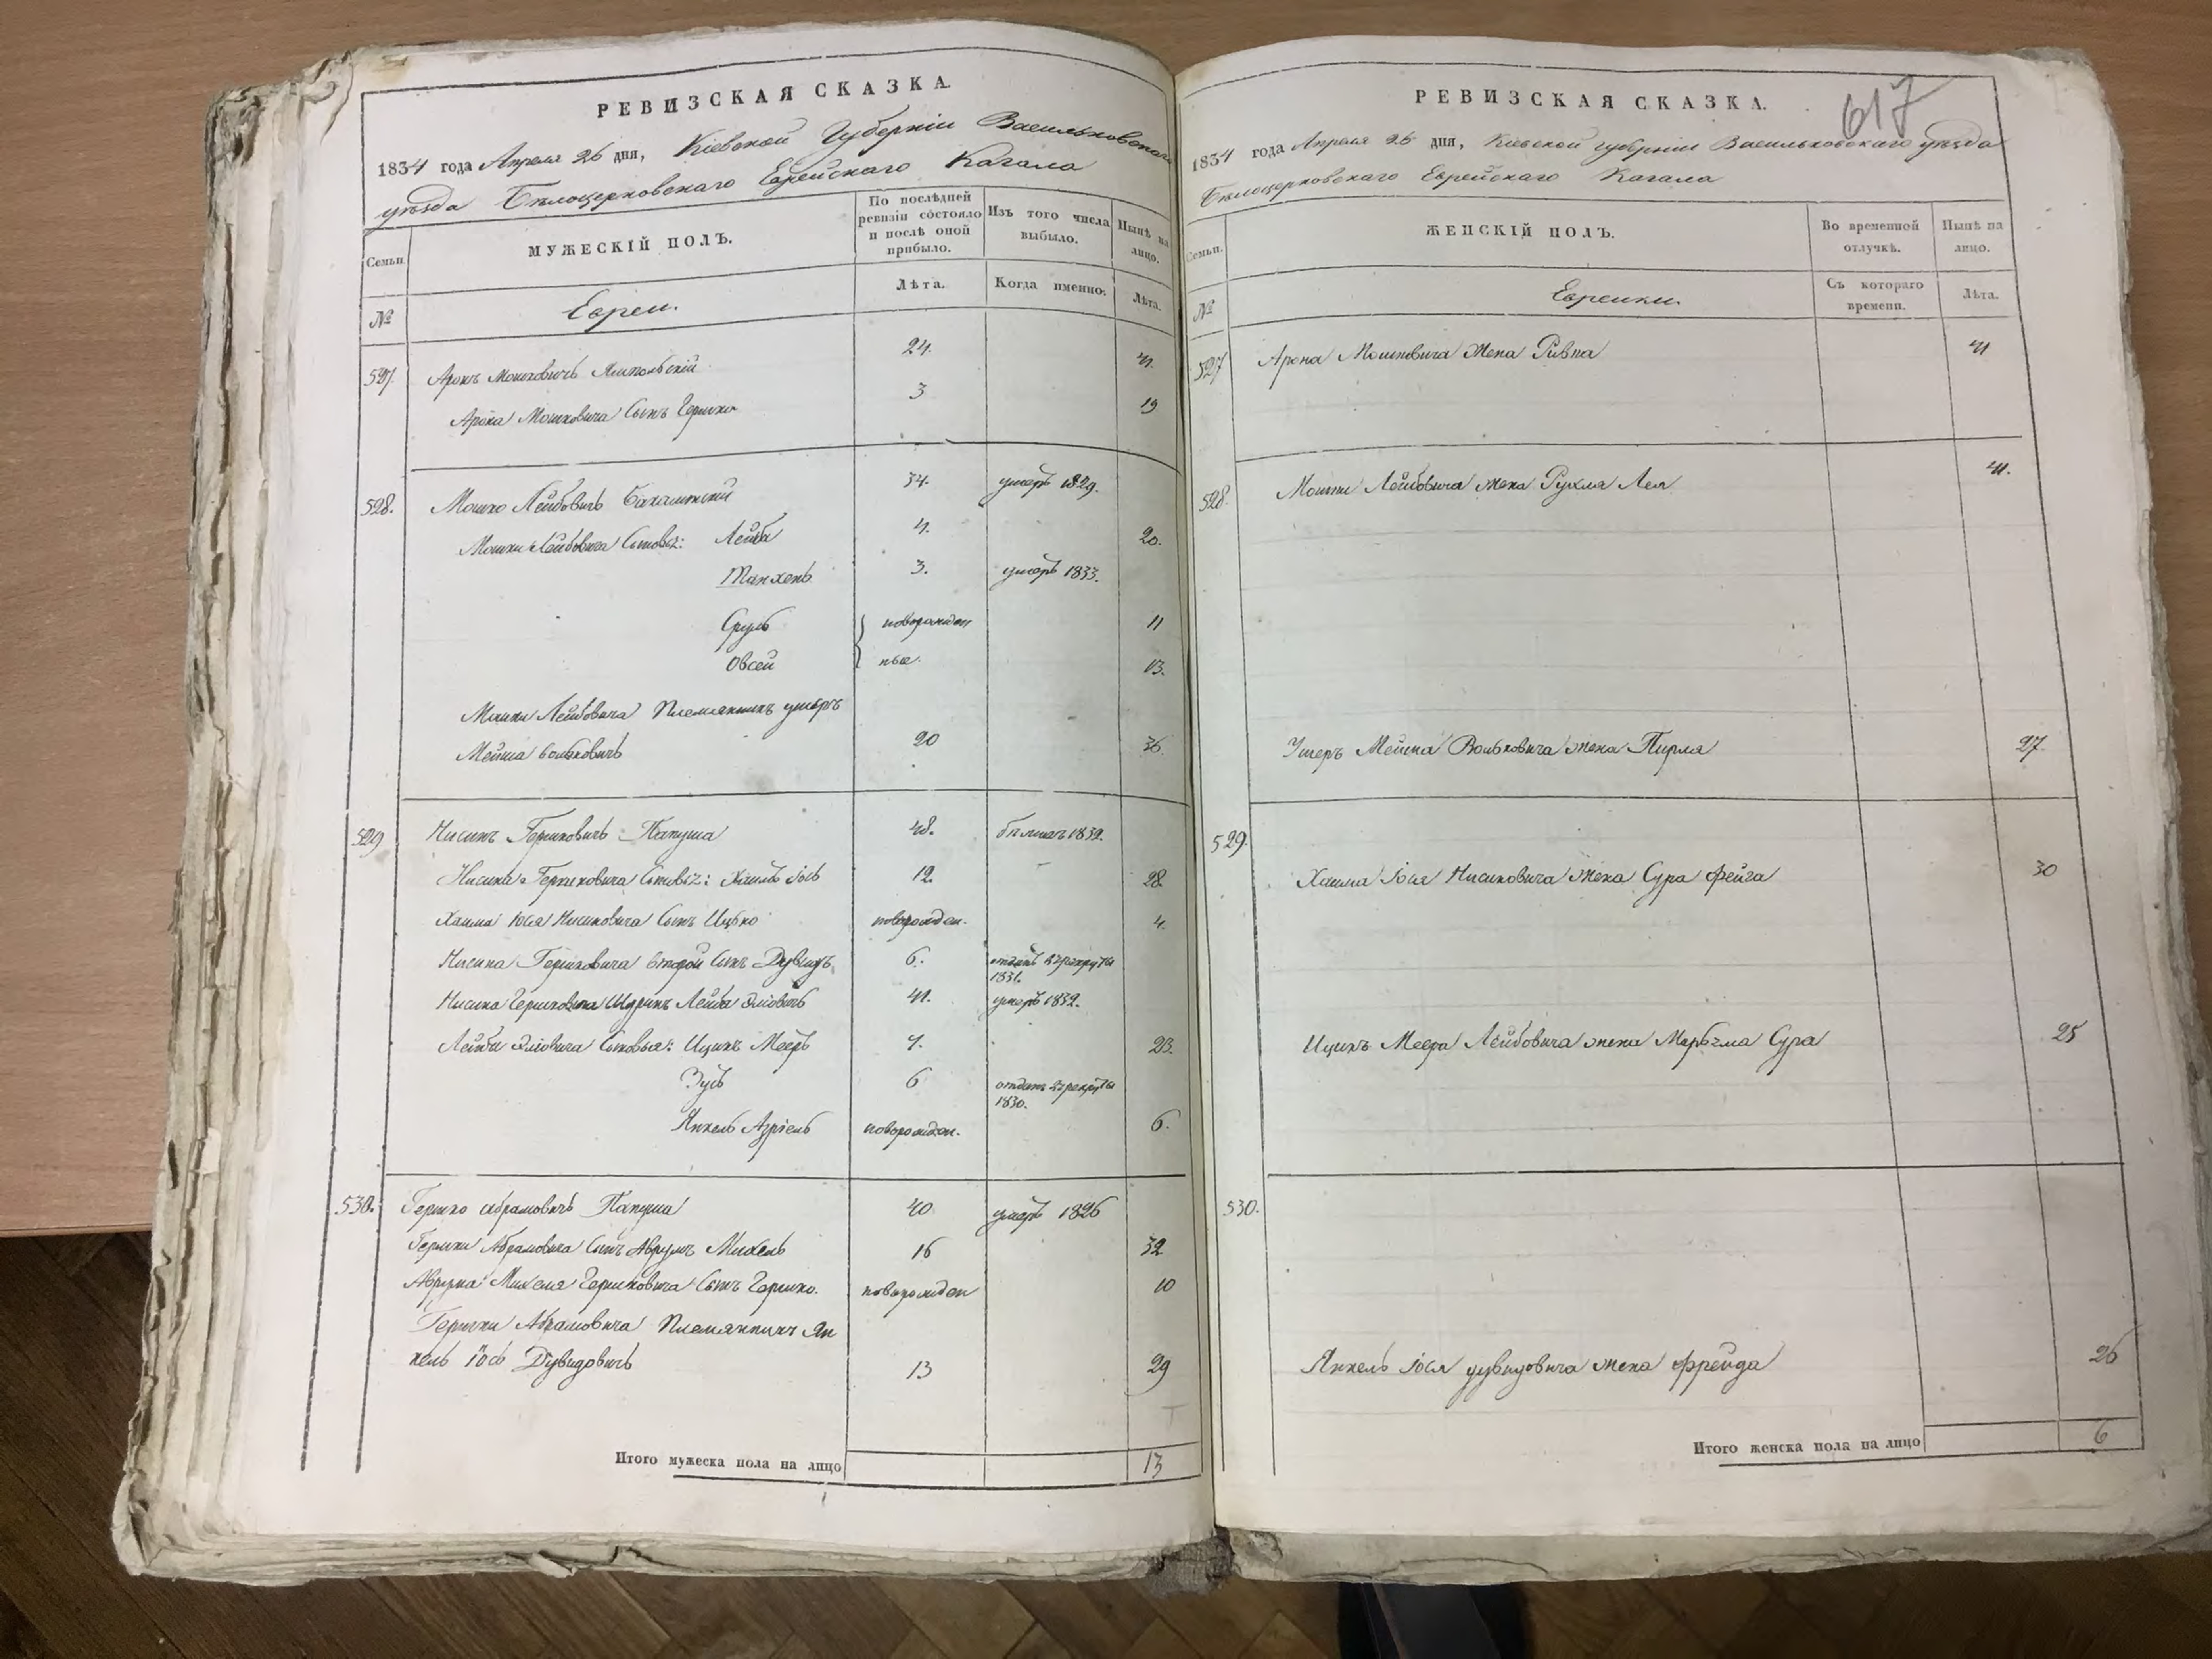 РЕВИЗСКАЯ СКАЗКА.
1834 года Апреля 26 дня, Кіевской Губерніи Васильковскаго
уѣзда Бѣлоцерковскаго Еврейскаго Кагала
Семьи. МУЖЕСКІЙ ПОЛЪ. По послѣдней ревизіи состояло и послѣ оной прибыло. Изъ того числа выбыло. Нынѣ на лицо.
№ Евреи. Лѣта. Когда именно. Лѣта.
527. Аронъ Мошковичъ 24. 41.
Арона Мошковича Сынъ Гершко 3 19
528. Мошко Лейбовичъ 34. умеръ 1829.
Мошки Лейбовича Сыновья: Лейба 4. 20.
Танхенъ 3. умеръ 1833.
Сруль новорожден 11
Овсей ные. 13.
Мошки Лейбовича Племянникъ умеръ
Мейша Вольковичъ 20 36.
529 Нисинъ Гершковичъ Папуша 48. 1832.
Нисина Гершковича Сыновья: Хаимъ Іось 12. 28.
Хаима Іося Нисиновича Сынъ Ицько новорожден. 4.
Нисина Гершковича второй Сынъ Дувидъ 6. отданъ въ рекруты
1831.
Нисина Гершковича Шуринъ Лейба Эліовичъ 41. умеръ 1832.
Лейби Эліовича Сыновья: Ицикъ Мееръ 7. 23.
Зусь 6 отданъ въ рекруты
1830.
Янкель Азріель новорожден. 6.
530. Гершко Абрамовичъ Папуша 40 умеръ 1826
Гершки Абрамовича Сынъ Аврумъ Михель 16 32
Аврума Михеля Гершковича Сынъ Гершко. новорожден 10
Гершки Абрамовича Племянникъ Ян
кель Іось Дувидовичъ 13 29
Итого мужеска пола на лицо 13
617
РЕВИЗСКАЯ СКАЗКА.
1834 года Апреля 26 дня, Кіевской Губерніи Васильковскаго уѣзда
Бѣлоцерковскаго Еврейскаго Кагала
Семьи. ЖЕНСКІЙ ПОЛЪ. Во временной отлучкѣ. Нынѣ на лицо.
№ Еврейки. Съ котораго времени. Лѣта.
527 Арона Мошковича жена Ривка 41
528. Мошки Лейбовича жена Рухля Лея 41.
Умеръ Мейша Вольковича жена Пирля 27.
529. Хаима Іося Нисиновича жена Сура Фейга 30
Ицикъ Меера Лейбовича жена Сура 25
530.
Янкель Іося Дувидовича жена Фрейда 26
Итого женска пола на лицо 6